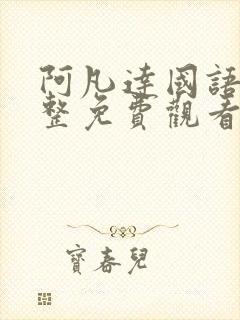 阿凡達國語
整免費觀看
寶春兒